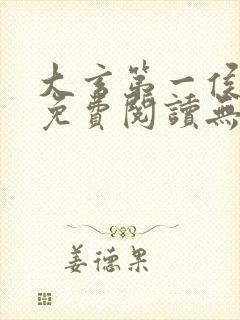 大言第一侯
免費閱讀無
姜德果